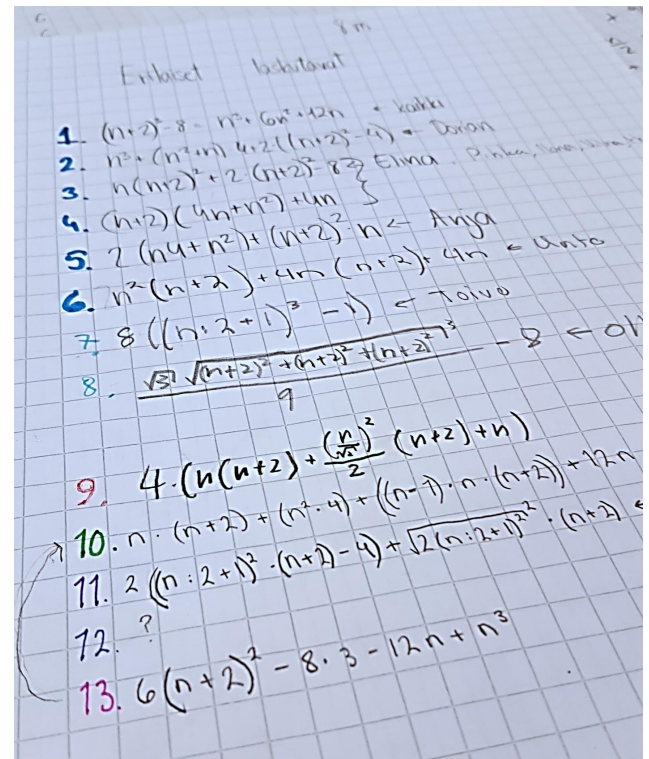 8 m
Erilaiset laskutavat
1. (n+2)³-8 = n³+6n²+12n ← kaikki
2. n³+(n²+n)·4+2((n+2)²-4) ← Dorian
3. n(n+2)²+2·(n+2)²-8 } Elina
4. (n+2)(4n+n²)+4n
5. 2(n4+n²)+(n+2)²·n ← Anja
6. n²(n+2)+4n(n+2)+4n ← Unto
7. 8((n:2+1)³-1) ← Toivo
8. √3 √(n+2)²+(n+2)²+(n+2)² ³ / 9 - 8 ←
9. 4·(n(n+2)+(n/√2)²/2 (n+2)+n)
10. n·(n+2)+(n²·4)+((n-1)·n·(n+2))+12n
11. 2((n:2+1)²·(n+2)-4)+√2(n:2+1)²²·(n+2) ←
12. ?
13. 6(n+2)²-8·3-12n+n³